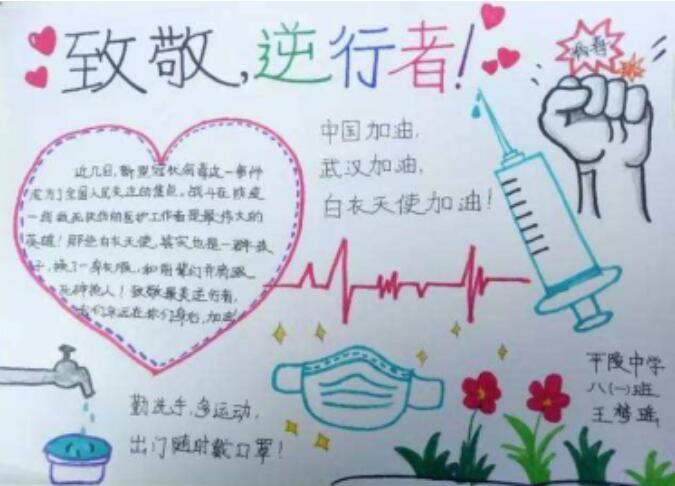 致敬,逆行者!
病毒
中国加油,
武汉加油,
白衣天使加油!
近几日,新型冠状病毒这一事件
成为了全国人民关注的焦点,战斗在防疫
一线救死扶伤的医护工作者是最伟大的
英雄!那些白衣天使,其实也是一群孩
子,换了一身衣服,和前辈们开病
死神抢人!致敬最美逆行者,
我们永远在你们身后,加油!
勤洗手,多运动,
出门随时戴口罩!
平陵中学
八(一)班
王梦瑶